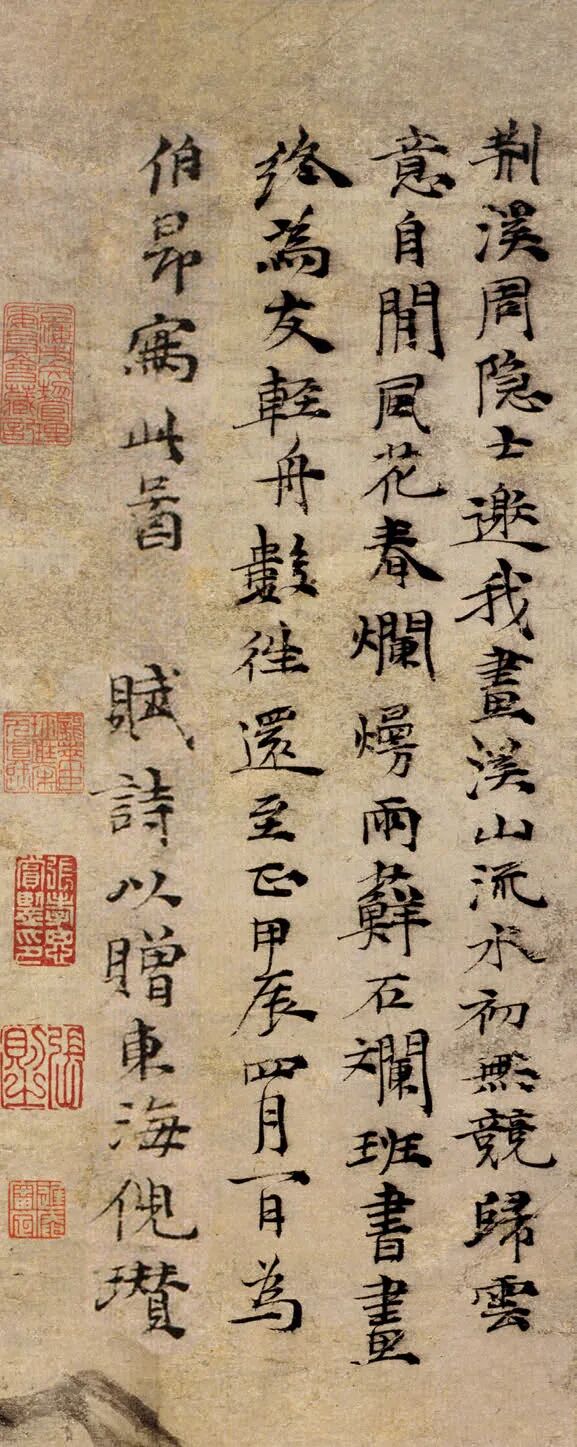 荆溪周隐士邀我畫溪山流水初無競歸雲
意自閒風花春爛熳雨蘚石斕班書畫
終為友輕舟數往還至正甲辰四月一日為
伯昂寫此啚 賦詩以贈東海倪瓚
張孝思賞鑒印
張則之